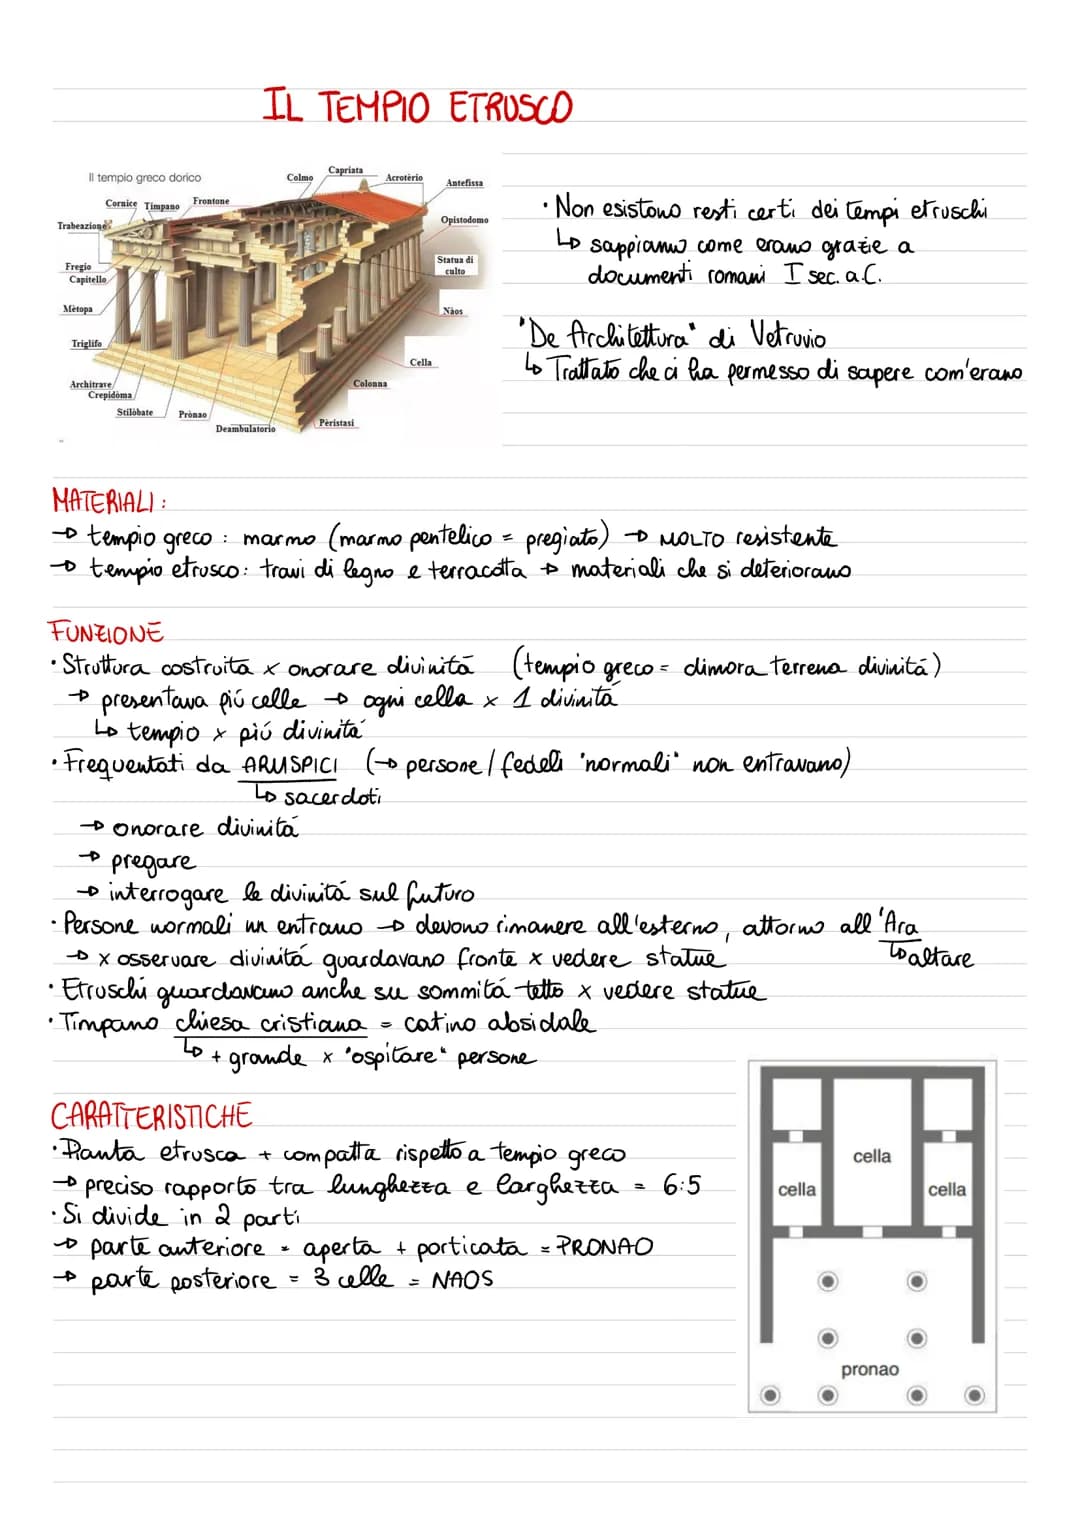 IL TEMPIO ETRUSCO
Il tempio greco dorico
Colmo
Capriata
Acrotèrio
Antefissa
Cornice
Timpano
Frontone
Trabeazione
Opistodomo
Fregio
Capitello
Statua di
culto
Mètopa
Nàos
Triglifo
Cella
Architrave
Crepidòma
Colonna
Stilòbate
Prònao
Deambulatorio
Pèristasi
· Non esistono resti certi dei tempi etruschi
↳ sappiamo come erano grazie a
documenti romani I sec. a.C.
"De Architettura" di Vetruvio
↳ Trattato che ci ha permesso di sapere com'erano
MATERIALI:
→ tempio greco : marmo (marmo pentelico = pregiato) → MOLTO resistente
→ tempio etrusco: travi di legno e terracotta → materiali che si deteriorano
FUNZIONE
· Struttura costruita x onorare divinitá (tempio greco = dimora terrena divinitá)
→ presentava piú celle → ogni cella x 1 divinitá
↳ tempio x piú divinitá
· Frequentati da ARUSPICI (→ persone / fedeli "normali" non entravano)
↳ sacerdoti
→ onorare divinitá
→ pregare
→ interrogare le divinitá sul futuro
· Persone normali nn entrano → devono rimanere all'esterno, attorno all'Ara
↳ altare
→ x osservare divinitá guardavano fronte x vedere statue
· Etruschi guardavano anche su sommitá tetto x vedere statue
· Timpano chiesa cristiana = catino absidale
↳ + grande x "ospitare" persone
CARATTERISTICHE
· Pianta etrusca + compatta rispetto a tempio greco
→ preciso rapporto tra lunghezza e larghezza = 6:5
· Si divide in 2 parti
→ parte anteriore = aperta + porticata = PRONAO
→ parte posteriore = 3 celle = NAOS
cella
cella
cella
pronao